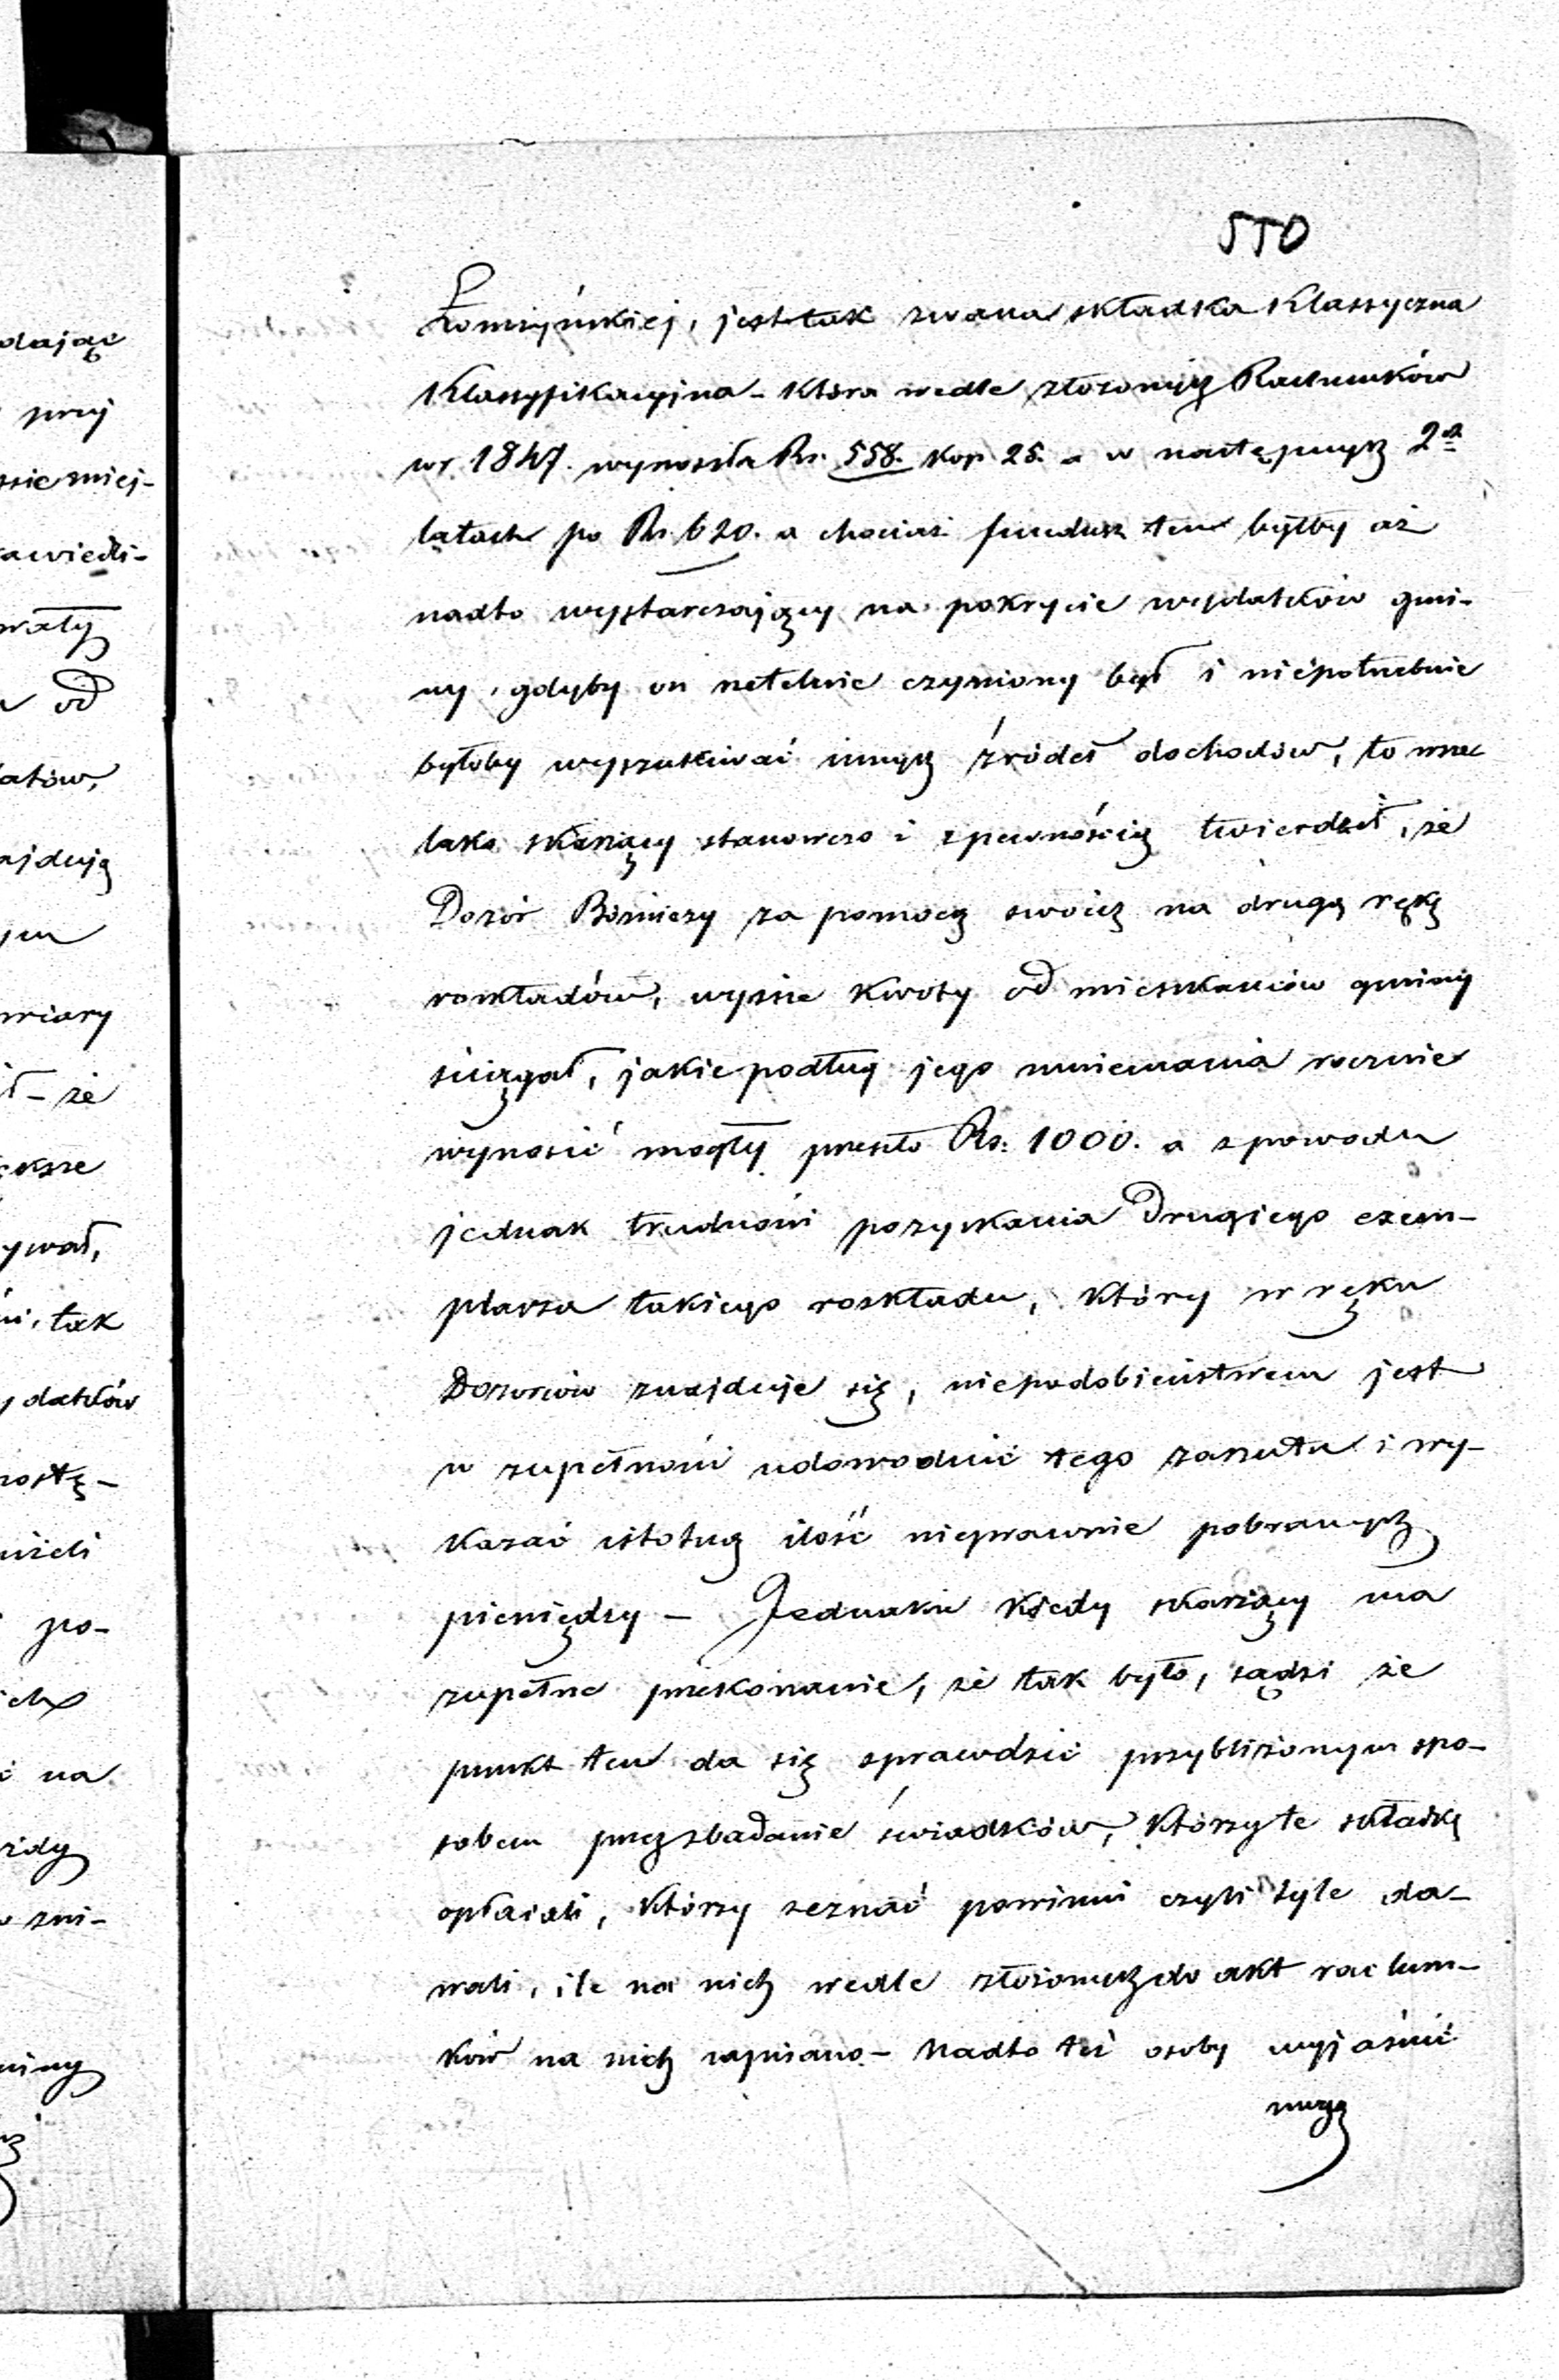 510
Łomżyńskiej, jest tak zwana składka Klassyczna
Klassyfikacyjna – która wedle złożonych Rachunków
w r 1847. wynosiła Rs. 558. kop 25. a w następnych 2ch
latach po Rs. 620. a chociaż fundusz ten byłby aż
nadto wystarczający na pokrycie wydatków gmi-
ny, gdyby on rzetelnie czyniony był i niepotrzebnie
byłoby wyszukiwać innych źródeł dochodów, to wsze
lako skarżący stanowczo i zpewnością twierdził, że
Dozór Bóżniczy za pomocą swoich na drugą rękę
rozkładów, wyższe kwoty od mieszkańców gminy
ściągał, jakie podług jego mniemania rocznie
wynosić mogły przeszło Rs. 1000. a zpowodu
jednak trudności pozyskania Drugiego exem-
plarza takiego rozkładu, który w ręku
Dozorców znajduje się, niepodobieństwem jest
w zupełności udowodnić tego zarzutu i wy-
kazać istotną ilość nieprawnie pobranych
pieniędzy – Jednakże kiedy skarżący ma
zupełne przekonanie, że tak było, sądzi że
punkt ten da się sprawdzić przybliżonym spo-
sobem przez zbadanie świadków, którzy te składkę
opłacali, którzy zeznać powinni czyli tyle da-
wali, ile na nich wedle złożonych do akt rachun-
ków na nich zapisano – Nadto też osoby wyjaśnić
mogą
dający
przy
miej-
awiedli-
wały
od
atów,
ajdują
miary
ł – że
ększe
ywał,
tak
ydatków
ostę-
niżeli
po-
ich
na
żdy
zni-
miny